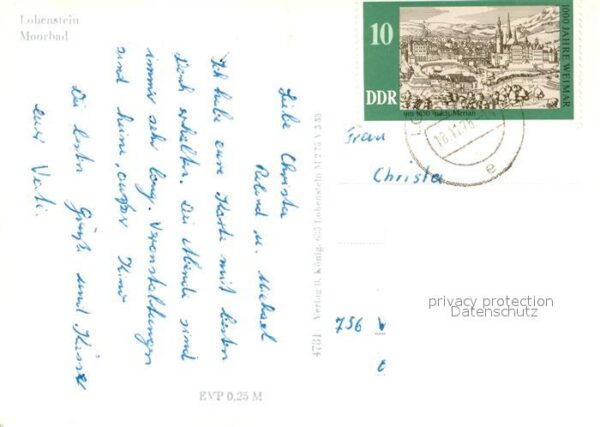 Lobenstein
Moorbad
Liebe Christa
Roland u. Michael
Ich habe eure Karte mit bestem
Dank erhalten. Die Abende sind
immer sehr lang. Veranstaltungen
sind keine, außer Kino
Die besten Grüße und Küsse
eure Vati.
EVP 0,25 M
4781 Verlag R. König, 685 Lobenstein M 275 V 3 35
10
DDR
1000 JAHRE WEIMAR
um 1650 nach Merian
Frau
Christa
756
privacy protection
Datenschutz